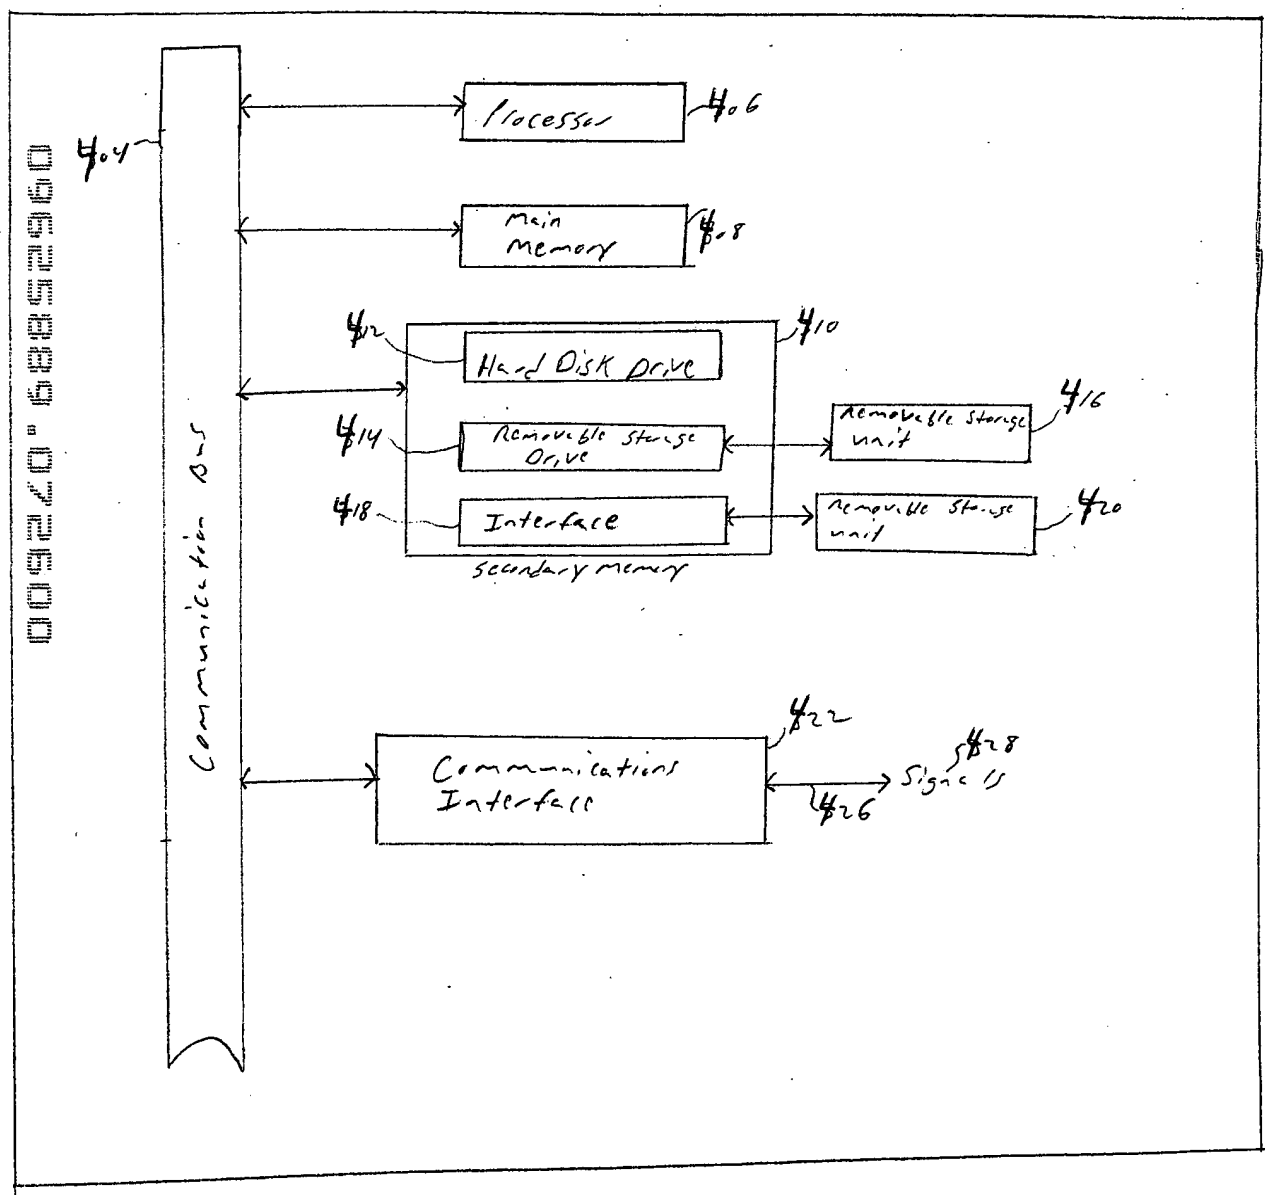 09625889.072600
404
Communication Bus
Processor
406
Main
Memory
408
412
Hard Disk Drive
410
414
Removable Storage
Drive
Removable Storage
unit
416
418
Interface
Removable Storage
unit
420
Secondary Memory
422
Communications
Interface
426
428
Signals